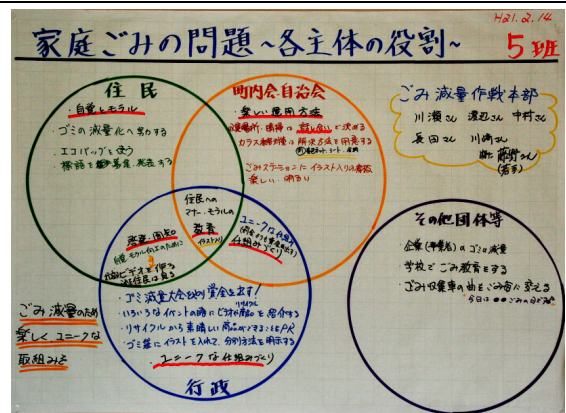 H21.2.14
家庭ごみの問題~各主体の役割~ 5班
住民
・自覚とモラル
・ゴミの減量化へ努力する
・エコバッグを使う
・標語を募集、発表する
町内会・自治会
・楽しい運用方法
話し合いで決める
カラス
解決方法を用意する
ごみステーションにイラスト入りの看板
楽しい、明るい
ごみ減量作戦本部
川瀬さん 渡辺さん 中村さん
長田さん 川崎さん
藤野さん
(若手)
住民への
マナー、モラルの
教育
イラスト入り
啓蒙・周知
ビデオを作る
住民は見る
ユニークな仕組み
仕組みづくり
・ゴミ減量大会をやり資金を出す!
・いろいろなイベントの時にビデオ
を紹介する
・リサイクルから素晴しい商品ができることPR
・ゴミ袋にイラストを入れて、分別方法を明示する
・ユニークな仕組みづくり
行政
その他団体等
・企業(事業者)のゴミの減量
・学校でごみ教育をする
・ごみ収集車の曲をごみ毎に変える
今日は●●ごみの日
ごみ減量のため
楽しくユニークな
取組みを